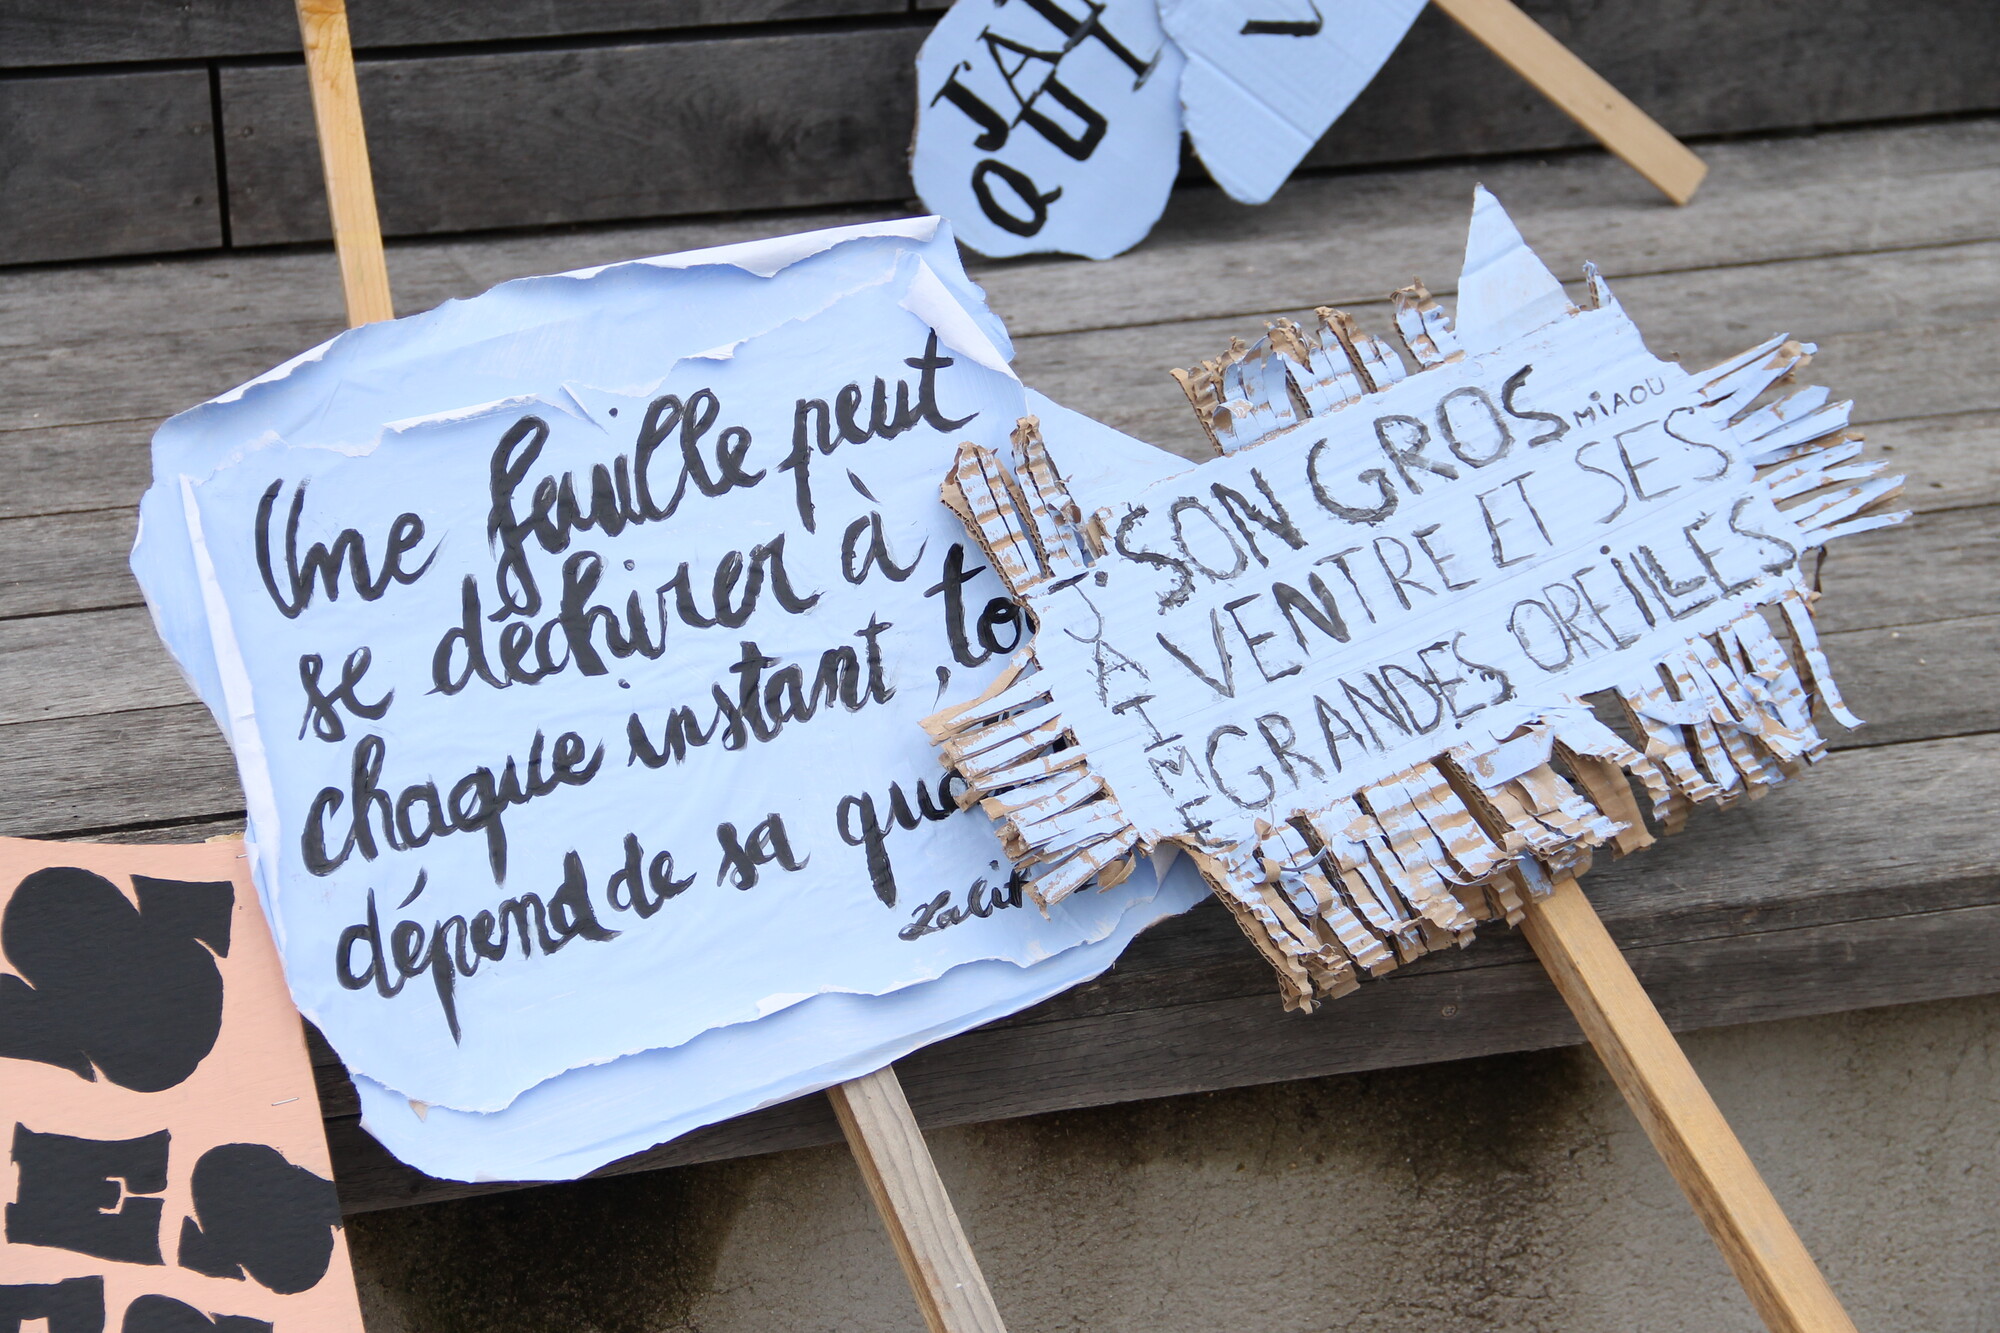 J'AI
QUI
V
Une feuille peut
se déchirer à
chaque instant, to
dépend de sa qua
J'AIME
SON GROS
MIAOU
VENTRE ET SES
GRANDES OREILLES
ES